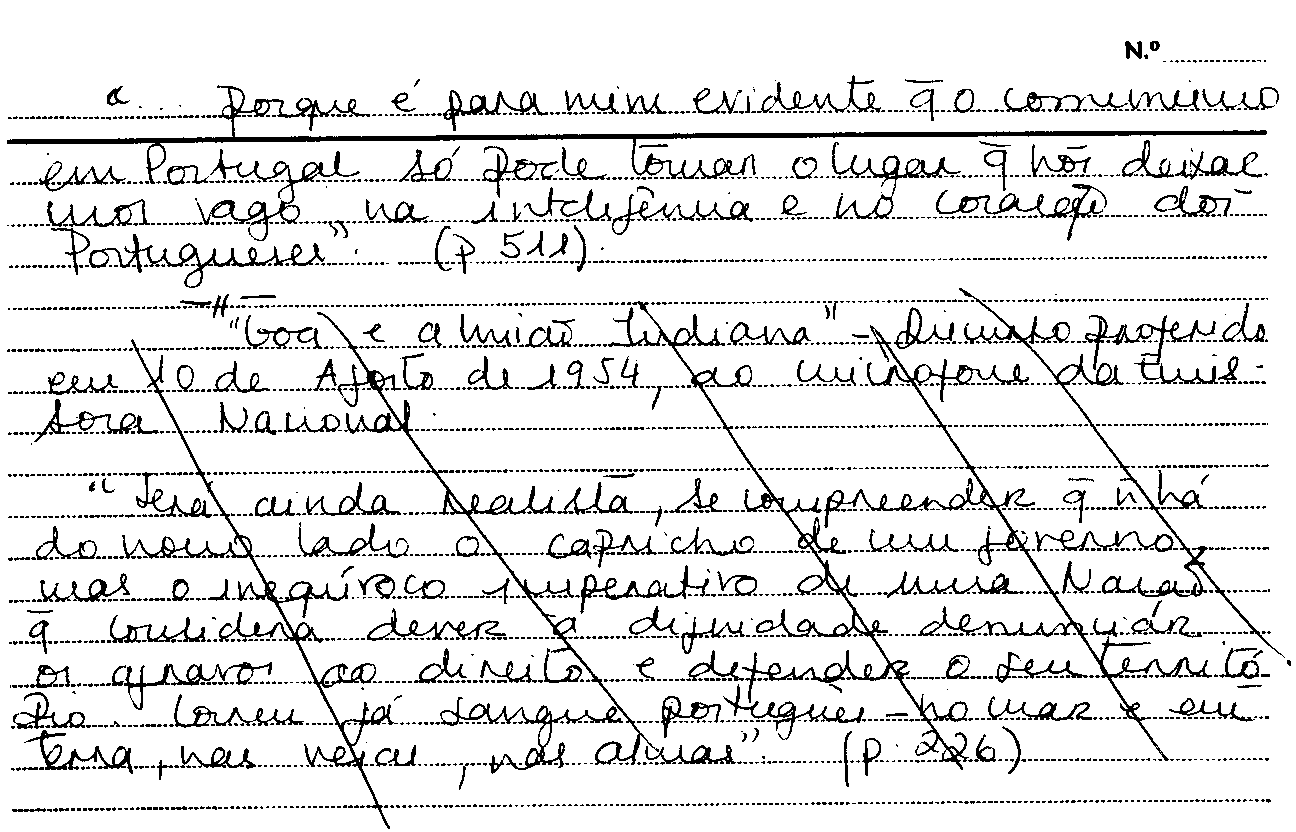 N.º
"... porque é para mim evidente q̄ o comunismo
em Portugal só pode tomar o lugar q̄ nós deixar
mos vago, na inteligência e no coração dos
Portugueses". (p 511).
—"—
"Goa e a União Indiana" - Discurso proferido
em 10 de Agosto de 1954, ao microfone da Emis-
sora Nacional.
"Será ainda realista, se compreender q̄ ñ há
do nosso lado o capricho de um governo,
mas o inequívoco imperativo de uma Nação
q̄ considera dever à dignidade denunciar
os agravos ao direito e defender o seu territó
rio. Correu já sangue português - no mar e em
terra, nas veias, nas almas". (p. 226)